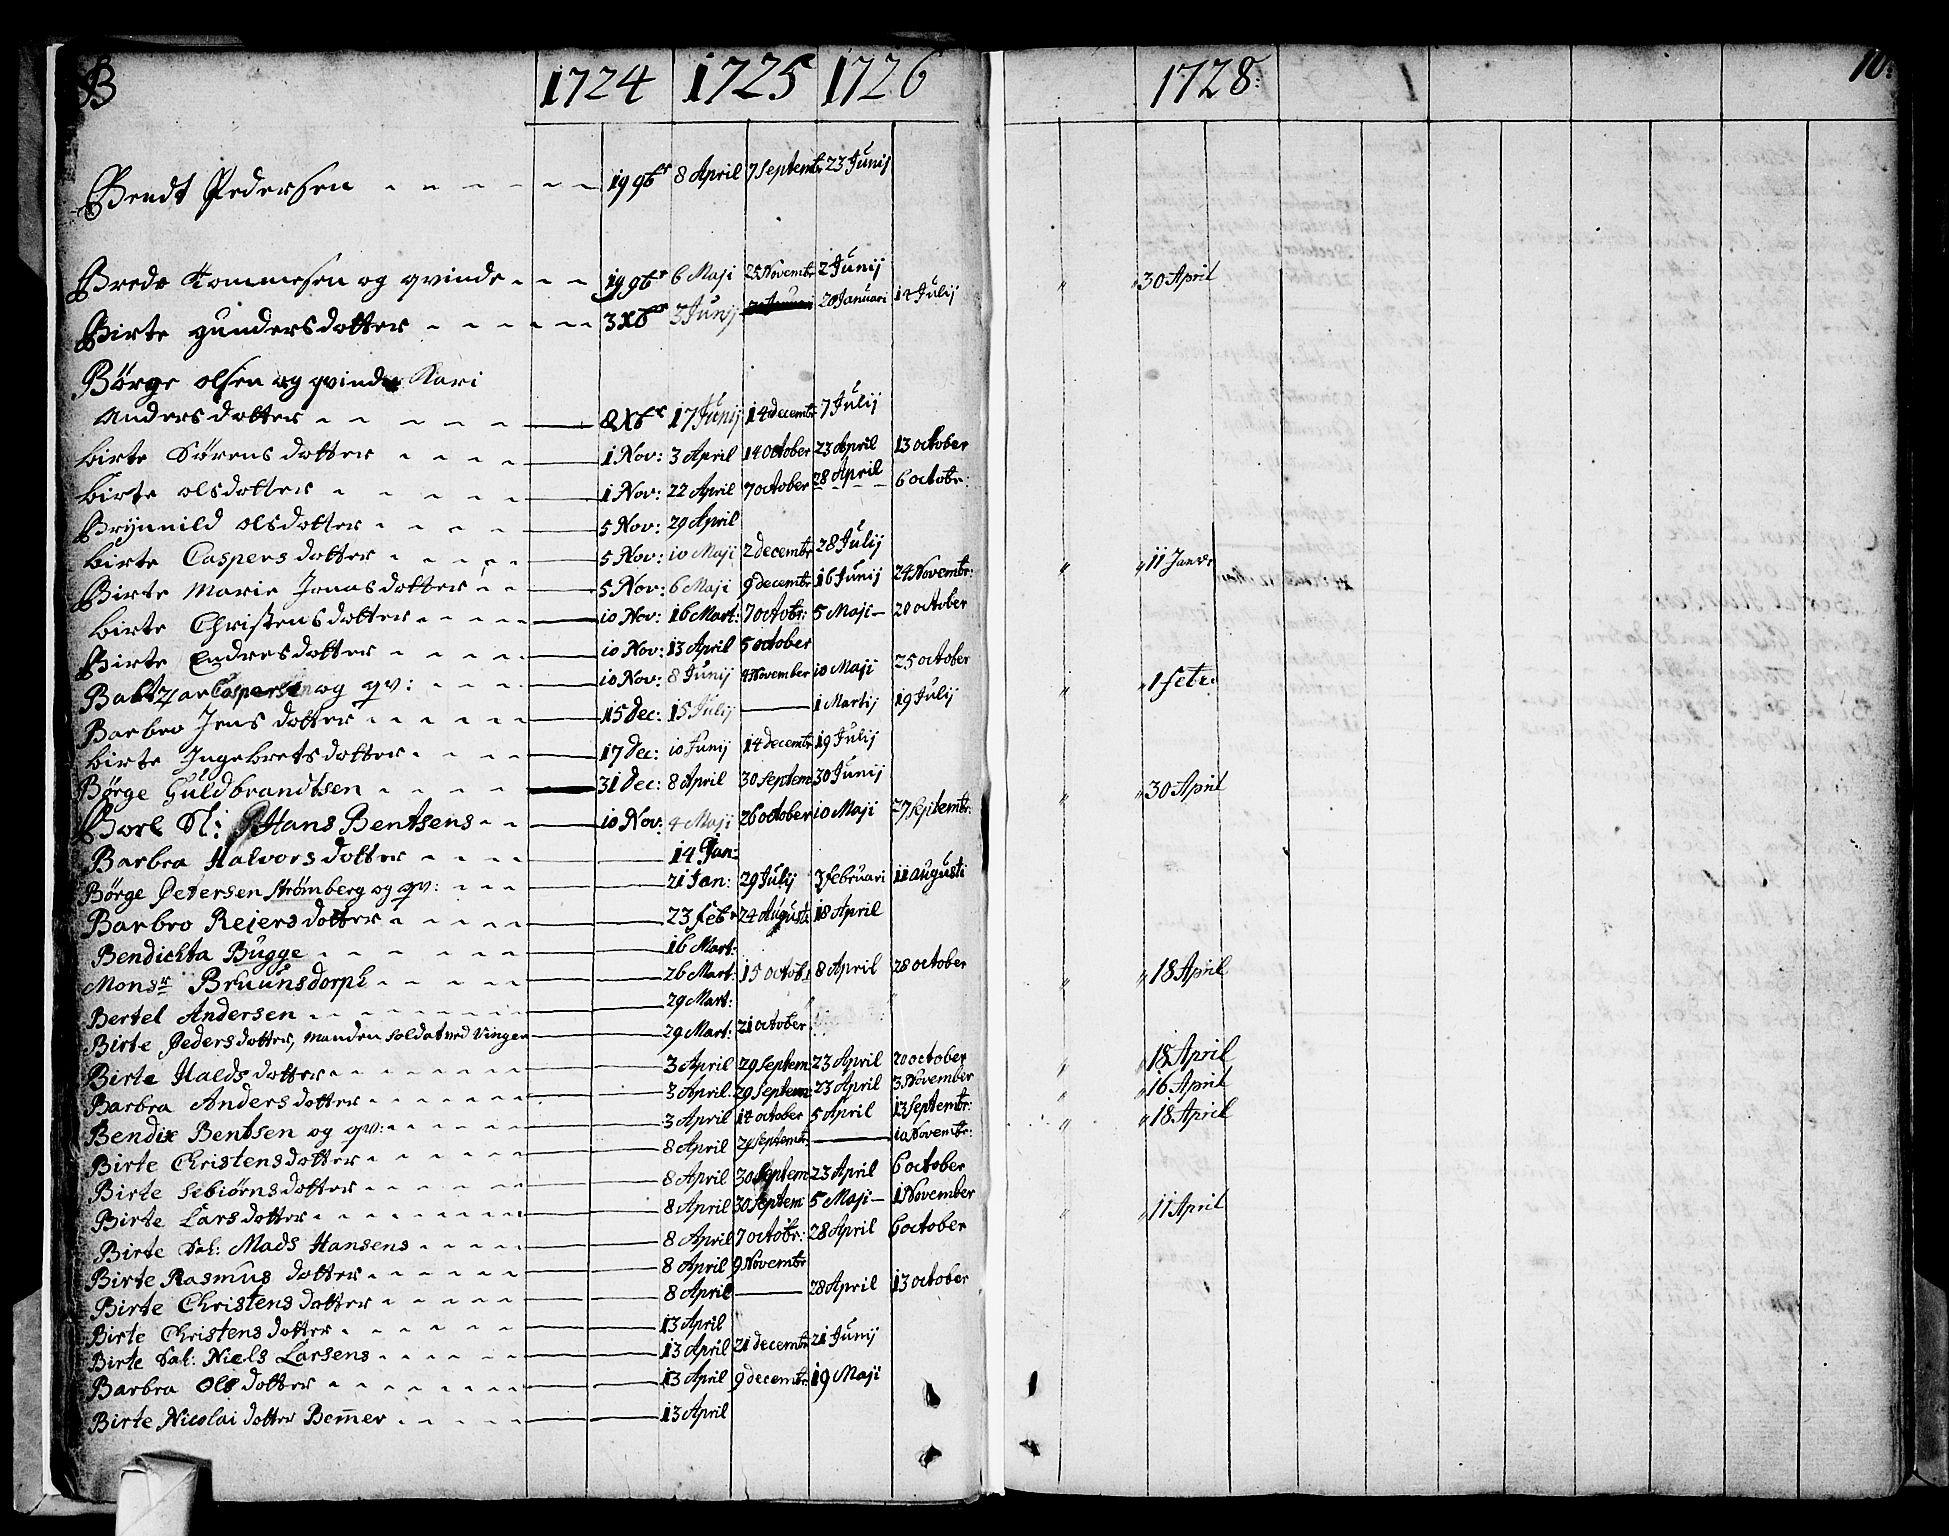 B 1724 1725 1726 1728. 10.
Bendt Pedersen 19 9br 8 April 7 Septembr 23 Junij
Brede Tommesen og qvinde 19 9br 6 Maji 25 Novembr 2 Junij " " 30 April
Birte gundersdotter 3 Xbr 3 Junij 20 Januari 12 Julij
Börge olsen og qvinde Kari
Andersdotter 8 Xbr 17 Junij 14 decembr 7 Julij
birte Sørensdotter 1 Nov: 3 April 14 october 23 April 13 october
birte olsdotter 1 Nov: 22 April 7 october 28 April 6 octobr:
Brynnild olsdotter 5 Nov: 29 April
birte Caspersdotter 5 Nov: 10 Maji 2 decembr 28 Julij " " 11 Janvr
Birte Marie Jonasdotter 5 Nov: 6 Maji 9 decembr 16 Junij 24 Novembr:
birte Christensdotter 10 Nov: 16 Mart: 7 octobr: 5 Maji 20 october
Birte Endresdotter 10 Nov: 13 April 5 october
Baltzar Caspersen og qv: 10 Nov: 8 Junij 4 November 10 Maji 25 october " " 1 febr.
Barbro Jensdotter 15 Dec: 15 Julij 1 Martij 19 Julij
birte Ingebretsdotter 17 Dec: 10 Junij 14 decembr 19 Julij
Börge Guldbrandtsen 31 Dec: 8 April 30 Septem 30 Junij " " 30 April
Borl Sl: Hans Bentsens 10 Nov: 4 Maji 26 october 10 Maji 27 Septembr:
Barbra Halvorsdotter 14 Jan:
Börge Petersen Strömberg og qv: 21 Jan: 29 Julij 3 februari 11 augusti
Barbro Rejersdotter 23 febr 24 Augusti 18 April
Bendichta Bugge 16 Mart:
Monsr Bruunsdorph 26 Mart: 15 octob: 8 April 28 october " " 18 April
Bertel Andersen 29 Mart:
Birte Pedersdotter, Manden Soldat ved Vingen 29 Mart: 21 october
Birte Haldsdotter 3 April 29 Septem 23 April 20 october " " 18 April
Barbra Andersdotter 3 April 29 Septem 23 April 3 November " " 16 April
Bendix Bentsen og qv: 3 April 14 october 5 April 13 Septembr: " " 18 April
Birte Christensdotter 8 April 29 Septembr. 10 Novembr:
Birte Sebiörnsdotter 8 April 30 Septem 23 April 6 october
Birte Larsdotter 8 April 30 Septem: 5 Maji 1 November " " 11 April
Birte Sal: Mads Hansens 8 April 7 octobr: 28 April 6 october
Birte Rasmusdotter 8 April 9 Novembr
Birte Christensdotter 8 April 28 April 13 october
Birte Christensdotter 13 April
Birte Sal: Niels Larsens 13 April 21 decembr 21 Junij
Barbra Olsdotter 13 April 9 decembr 19 Maji
Birte Nicolaidotter Bemer 13 April